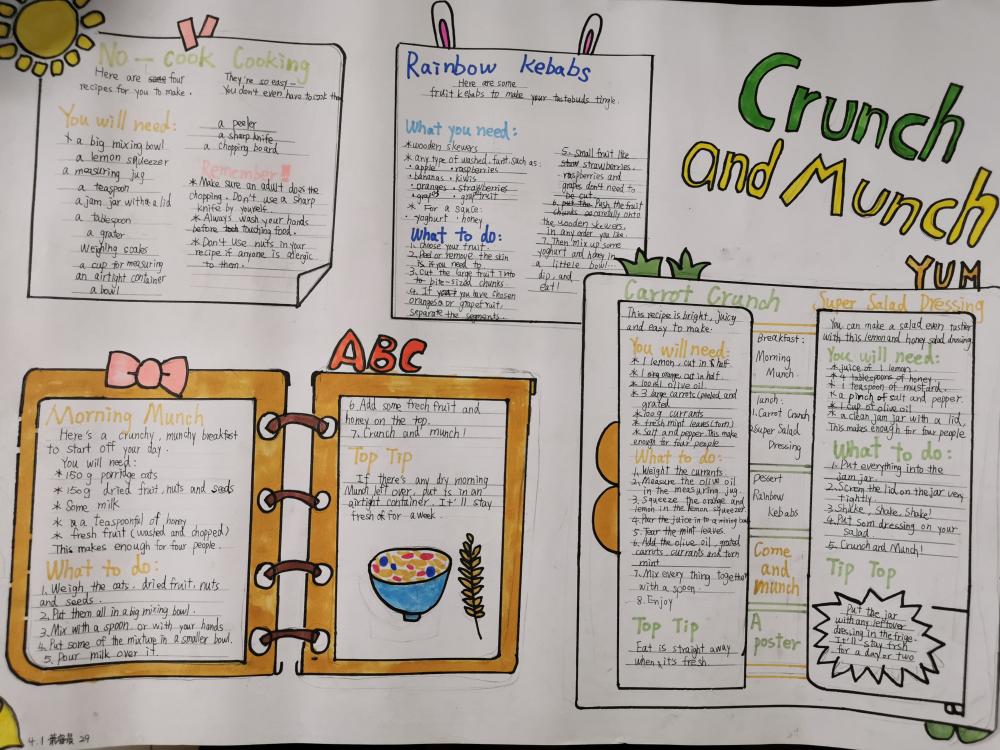 Crunch
and Munch
YUM
No-cook Cooking
Here are some four
recipes for you to make.
They're so easy—
You don't even have to cook the
You will need:
* a big mixing bowl
a lemon squeezer
a measuring jug
a teaspoon
a jam jar with a lid
a tablespoon
a grater
Weighing scales
a cup for measuring
an airtight container
a bowl
a peeler
a sharp knife
a chopping board
Remember!
* Make sure an adult does the
chopping. Don't use a sharp
knife by yourself.
* Always wash your hands
before touching food.
* Don't use nuts in your
recipe if anyone is allergic
to them.
Rainbow Kebabs
Here are some
fruit kebabs to make your tastebuds tingle.
What you need:
* wooden skewers
* any type of washed fruit such as:
• apple • raspberries
• bananas • kiwis
• oranges • strawberries
• grapes • grapefruit
* For a sauce:
• yoghurt • honey
What to do:
1. choose your fruit.
2. Peel or remove the skin
if you need to.
3. Cut the large fruit into
to bite-sized chunks.
4. If you have chosen
oranges or grapefruit,
separate the segments.
5. small fruit like
strawberries,
raspberries and
grapes don't need to
be cut.
6. Push the fruit
chunks carefully onto
the wooden skewers,
in any order you like.
7. Then mix up some
yoghurt and honey in
a little bowl...
dip, and
eat!
ABC
Morning Munch
Here's a crunchy, munchy breakfast
to start off your day.
You will need:
* 150 g porridge oats
* 150g dried fruit, nuts and seeds
* Some milk
* a teaspoonful of honey
* fresh fruit (washed and chopped)
This makes enough for four people.
What to do:
1. Weigh the oats, dried fruit, nuts
and seeds.
2. Put them all in a big mixing bowl.
3. Mix with a spoon or with your hands.
4. Put some of the mixture in a smaller bowl.
5. Pour milk over it.
6. Add some frech fruit and
honey on the top.
7. Crunch and munch!
Top Tip
If there's any dry morning
Munch left over, put is in an
airtight container. It'll stay
fresh for a week.
Carrot Crunch
This recipe is bright, juicy
and easy to make.
You will need:
* 1 lemon, cut in half
* 1 orange, cut in half
* 100ml olive oil
* 3 large carrots, peeled and
grated
* 100g currants
* fresh mint leaves (torn)
* Salt and pepper This make
enough for four people
What to do:
1. Weight the currants.
2. Measure the olive oil
in the measuring jug.
3. Squeeze the orange and
lemon in the lemon squeezer.
4. Pour the juice in to a mixing bowl
5. Tear the mint leaves.
6. Add the olive oil, grated
carrots, currants and torn
mint
7. Mix every thing together
with a spoon.
8. Enjoy
Top Tip
Eat is straight away
when it's fresh.
Breakfast:
Morning
Munch
lunch:
1. Carrot Crunch
2. Super Salad
Dressing
Dessert
Rainbow
Kebabs
Come
and
munch
A
poster
Super Salad Dressing
You can make a salad even tastier
with this lemon and honey salad dressing
You will need:
* juice of 1 lemon
* 4 tablespoons of honey
* 1 teaspoon of mustard
* a pinch of salt and pepper
* 1 cup of olive oil
* a clean jam jar with a lid,
This makes enough for four people
What to do:
1. Put everything into the
jam jar.
2. Screw the lid on the jar very
tightly
3. Shake, Shake, Shake!
4. Put som dressing on your
salad.
5. Crunch and Munch!
Tip Top
Put the jar
with any leftover
dressing in the frige.
It'll stay frsh
for a day or two
4.1
29